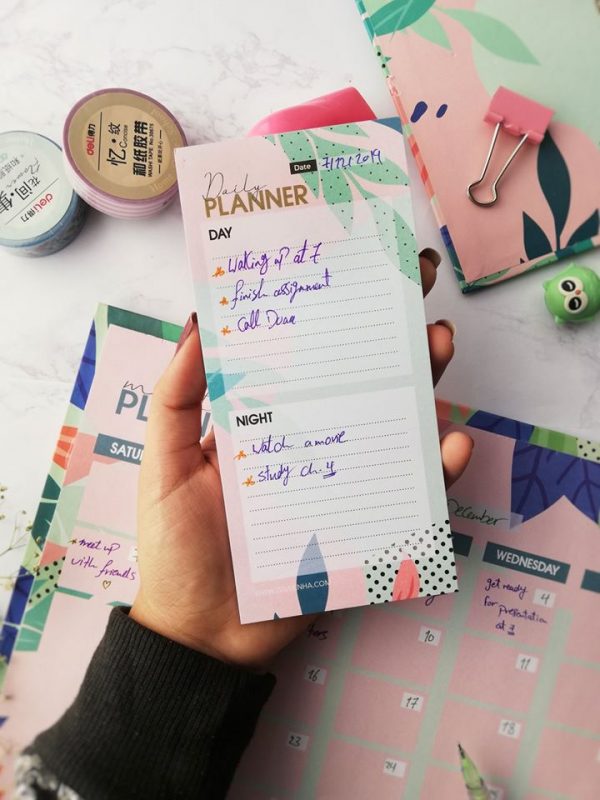 deli得力
忆·纹
Contour
和纸胶带
WASH TAPE No.20875
deli得力
花间·集
和纸胶带
Date 7/12/2019
Daily
PLANNER
DAY
Waking up at 7
finish assignment
Call Duaa
NIGHT
watch a movie
study ch. 4
PL
SATU
meet up
with friends
December
WEDNESDAY
4
get ready
For Presentation
at 7
10
11
16
17
18
23
24